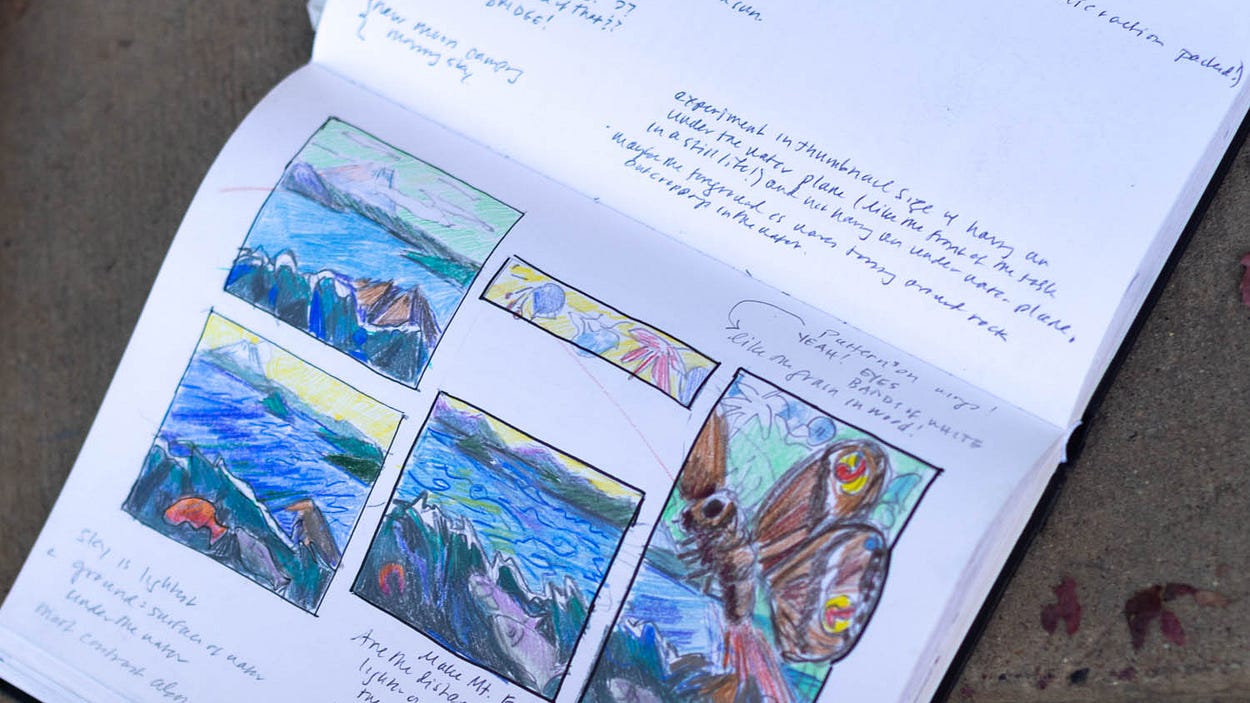 ??
of that??
BRIDGE!
sun.
action packed!)
new moon campy
morning sky
experiment in thumbnail size of having an
under the water plane (like the front of the task
in a still life!) and not having an under water plane,
maybe the foreground is waves tossing around rock
outcropping in the water.
Pattern on wings!
YEAH! EYES
BANDS of WHITE
like the grain in wood!
sky is lightest
ground = surface of water
under the water
most contrast also
Make Mt.
Are the distan
lighter or
the